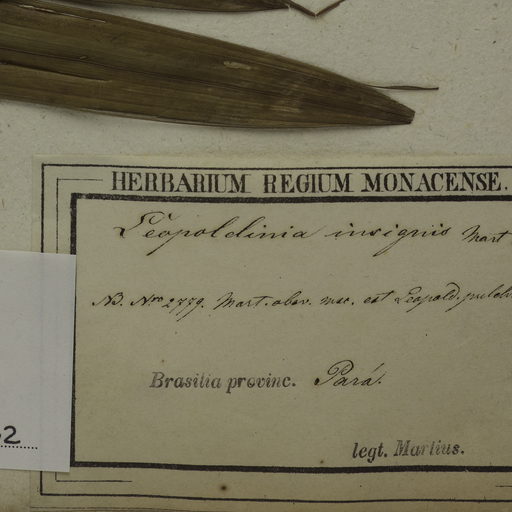 HERBARIUM REGIUM MONACENSE.
Leopoldinia insignis Mart
NB. Nro 2779. Mart. obsv. msc. est Leopold. pulch
Brasilia provinc. Pará.
2
legt. Martius.